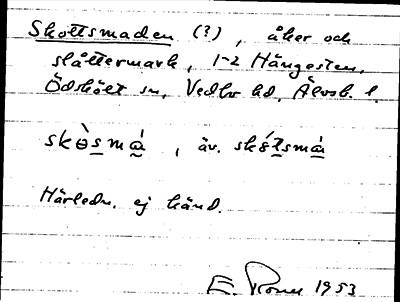 Skottsmaden (?), åker och
slåttermark, 1-2 Hängesten,
Ödskölt sn, Vedbo hd, Älvsb. l.
skòsmá, äv. skótsmá
Härledn. ej känd.
E. 1953